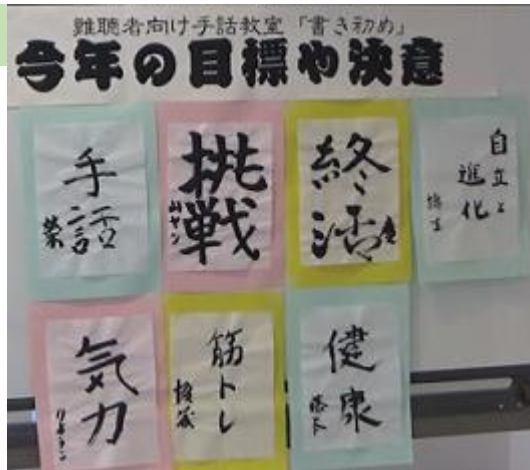 難聴者向け手話教室「書き初め」
今年の目標や決意
手話
挑戦
終活
自立と
進化
気力
筋トレ
健康